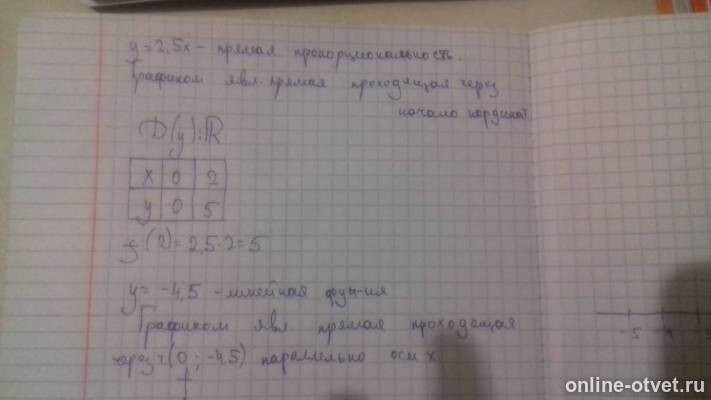 y = 2,5x - прямая пропорциональность.
Графиком явл. прямая проходящая через
начало кординат
D(y): ℝ
x 0 2
y 0 5
f(2) = 2,5·2 = 5
y = -4,5 - линейная фун-ия
Графиком явл прямая проходящая
через (0 ; -4,5) параллельно оси x
-5 -4 -3
online-otvet.ru